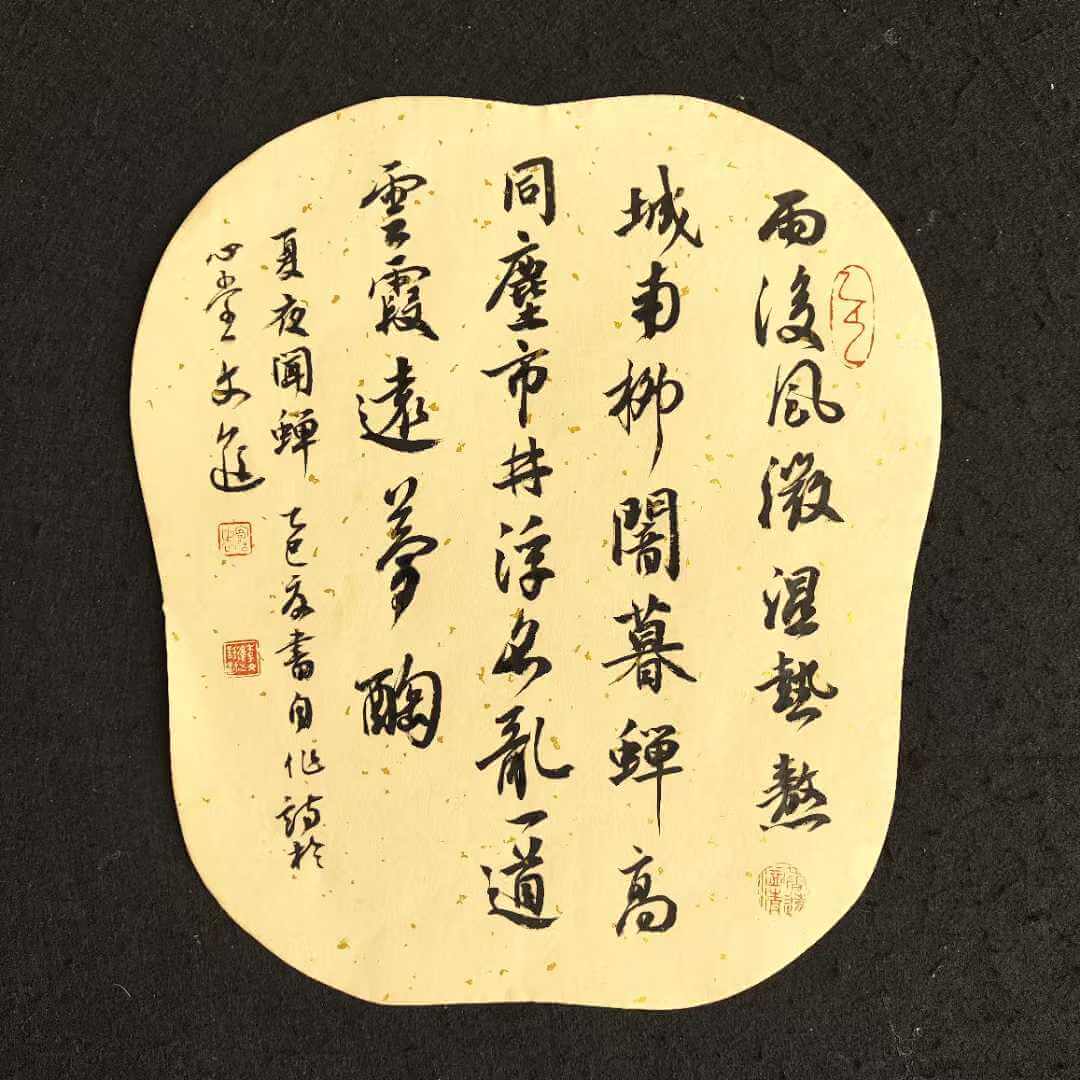 雨後風微濕熱熬
城南柳闇暮蟬高
同塵市井浮名亂一道
雲霞遠夢醄
夏夜聞蟬 乙巳夏書自作詩於
心堂文進